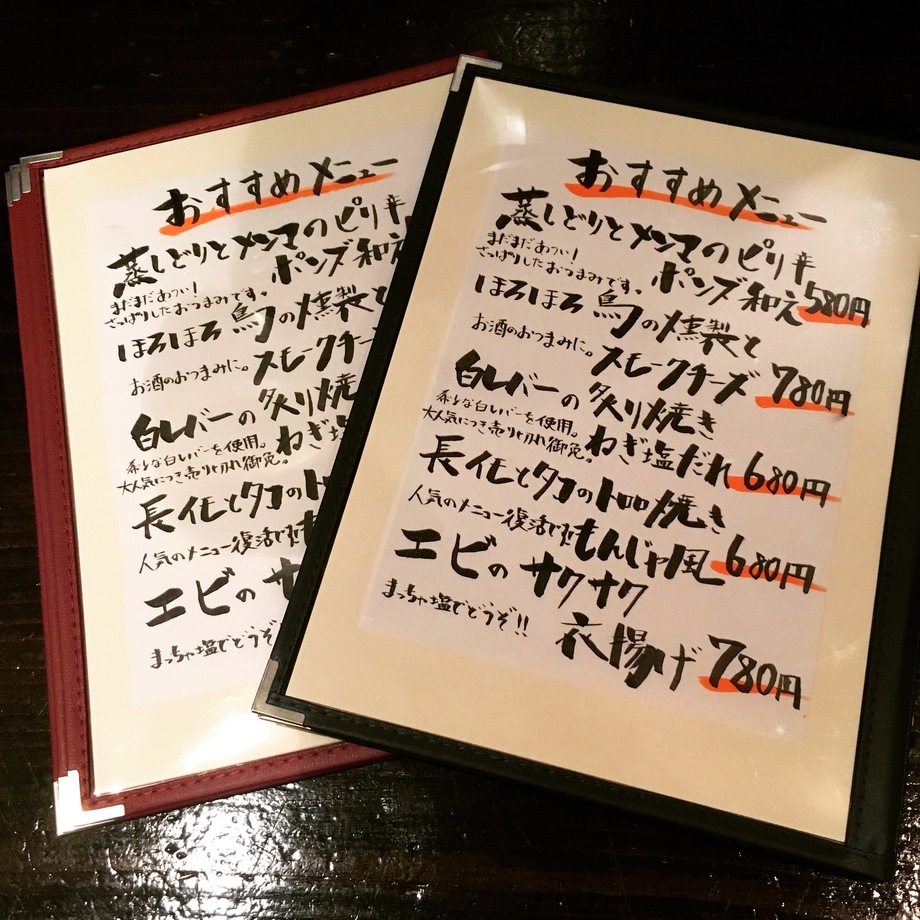 おすすめメニュー
蒸しどりとメンマのピリ辛
まだまだあつい!
さっぱりしたおつまみです。
ポンズ和え
ほろほろ鳥の燻製と
お酒のおつまみに。
スモークチー
白レバーの炙り焼
希少な白レバーを使用。
大人気につき売り切れ御免。
ねぎ塩
長芋とタコのトロロ
人気のメニュー復活です!
エビのサ
まっちゃ塩でどうぞ
おすすめメニュー
蒸しどりとメンマのピリ辛
まだまだあつい!
さっぱりしたおつまみです。
ポンズ和え 580円
ほろほろ鳥の燻製と
お酒のおつまみに。
スモークチーズ 780円
白レバーの炙り焼き
希少な白レバーを使用。
大人気につき売り切れ御免。
ねぎ塩だれ 680円
長芋とタコのトロロ焼き
人気のメニュー復活です!
もんじゃ風 680円
エビのサクサク
まっちゃ塩でどうぞ!!
衣揚げ 780円